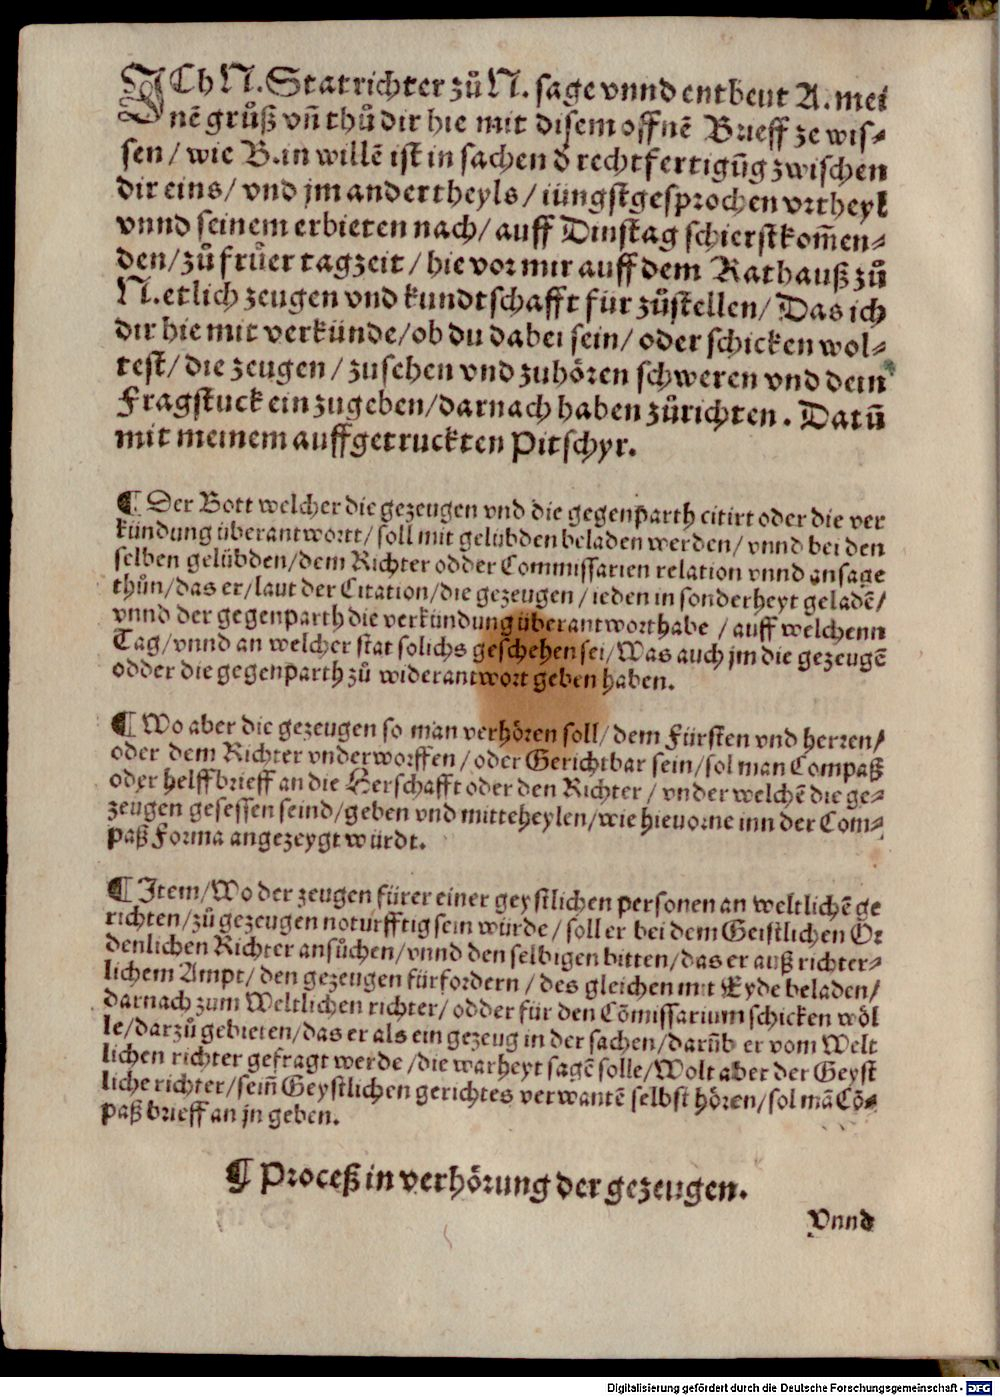 ICh N. Statrichter zů N. sage vnnd entbeut A. mei
nẽ grůß vñ thů dir hie mit disem offnẽ Brieff ze wis⸗
sen / wie B. in willẽ ist in sachen d̕ rechtfertigũg zwischen
dir eins / vnd jm andertheyls / iüngstgesprochen vrtheyl
vnnd seinem erbieten nach / auff Dinstag schierstkom̃en⸗
den / zů frůer tagzeit / hie vor mir auff dem Rathauß zů
N. etlich zeugen vnd kundtschafft für zůstellen / Das ich
dir hie mit verkünde / ob du dabei sein / oder schicken wol⸗
test / die zeugen / zusehen vnd zuhören schweren vnd dein
Fragstuck einzugeben / darnach haben zůrichten. Datũ
mit meinem auffgetruckten Pitschyr.
¶ Der Bott welcher die gezeugen vnd die gegenparth citirt oder die ver
kündung überantwortt / soll mit gelübden beladen werden / vnnd bei den
selben gelübden / dem Richter odder Commissarien relation vnnd ansage
thůn / das er / laut der Citation / die gezeugen / ieden in sonderheyt geladẽ /
vnnd der gegenparth die verkündung überantwort habe / auff welchenn
Tag / vnnd an welcher stat solichs geschehen sei / Was auch jm die gezeugẽ
odder die gegenparth zů widerantwort geben haben.
¶ Wo aber die gezeugen so man verhören soll / dem Fürsten vnd herren /
oder dem Richter vnderworffen / oder Gerichtbar sein / sol man Compaß
oder helffbrieff an die Herschafft oder den Richter / vnder welchẽ die ge⸗
zeugen gesessen seind / geben vnd mitteheylen / wie hieuorne inn der Com⸗
paß Forma angezeygt würdt.
¶ Item / Wo der zeugen fürer einer geystlichen personen an weltlichẽ ge
richten / zů gezeugen noturfftig sein würde / soll er bei dem Geistlichen Or
denlichen Richter ansůchen / vnnd den selbigen bitten / das er auß richter⸗
lichem Ampt / den gezeugen fürfordern / des gleichen mit Eyde beladen /
darnach zum Weltlichen richter / odder für den Cõmissarium schicken wöl
le / darzů gebieten / das er als ein gezeug in der sachen / darũb er vom Welt
lichen richter gefragt werde / die warheyt sagẽ solle / Wolt aber der Geyst
liche richter / sein̄ Geystlichen gerichtes verwantẽ selbst hören / sol mã Cõ⸗
paß brieff an jn geben.
¶ Proceß in verhörung der gezeugen.
Vnnd
Digitalisierung gefördert durch die Deutsche Forschungsgemeinschaft - DFG